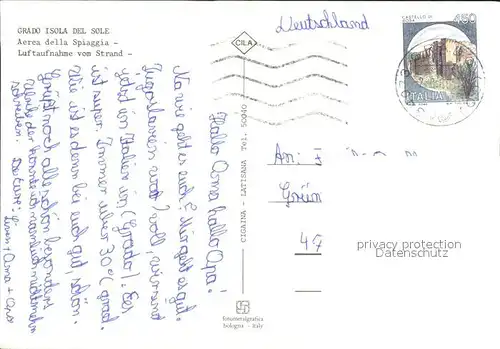 GRADO ISOLA DEL SOLE
Aerea della Spiaggia -
Luftaufnahme vom Strand -
Deutschland
CASTELLO DI
450
ITALIA
CILA
CIGAINA - LATISANA Tel. 50040
fotometalgrafica
bologna - italy
Hallo Oma hallo Opa!
Na wie geht es euch? Mir geht es gut.
Jugoslawien war toll, wir sind
jetzt in Italien in (Grado). Es
ist super. Immer über 30°C grad.
Wie ist es denn bei euch gut, schön.
Grüßt noch alle schön besonders
konnte ich nämlich nicht mehr
schreiben.
An:
Grün
49
privacy protection
Datenschutz